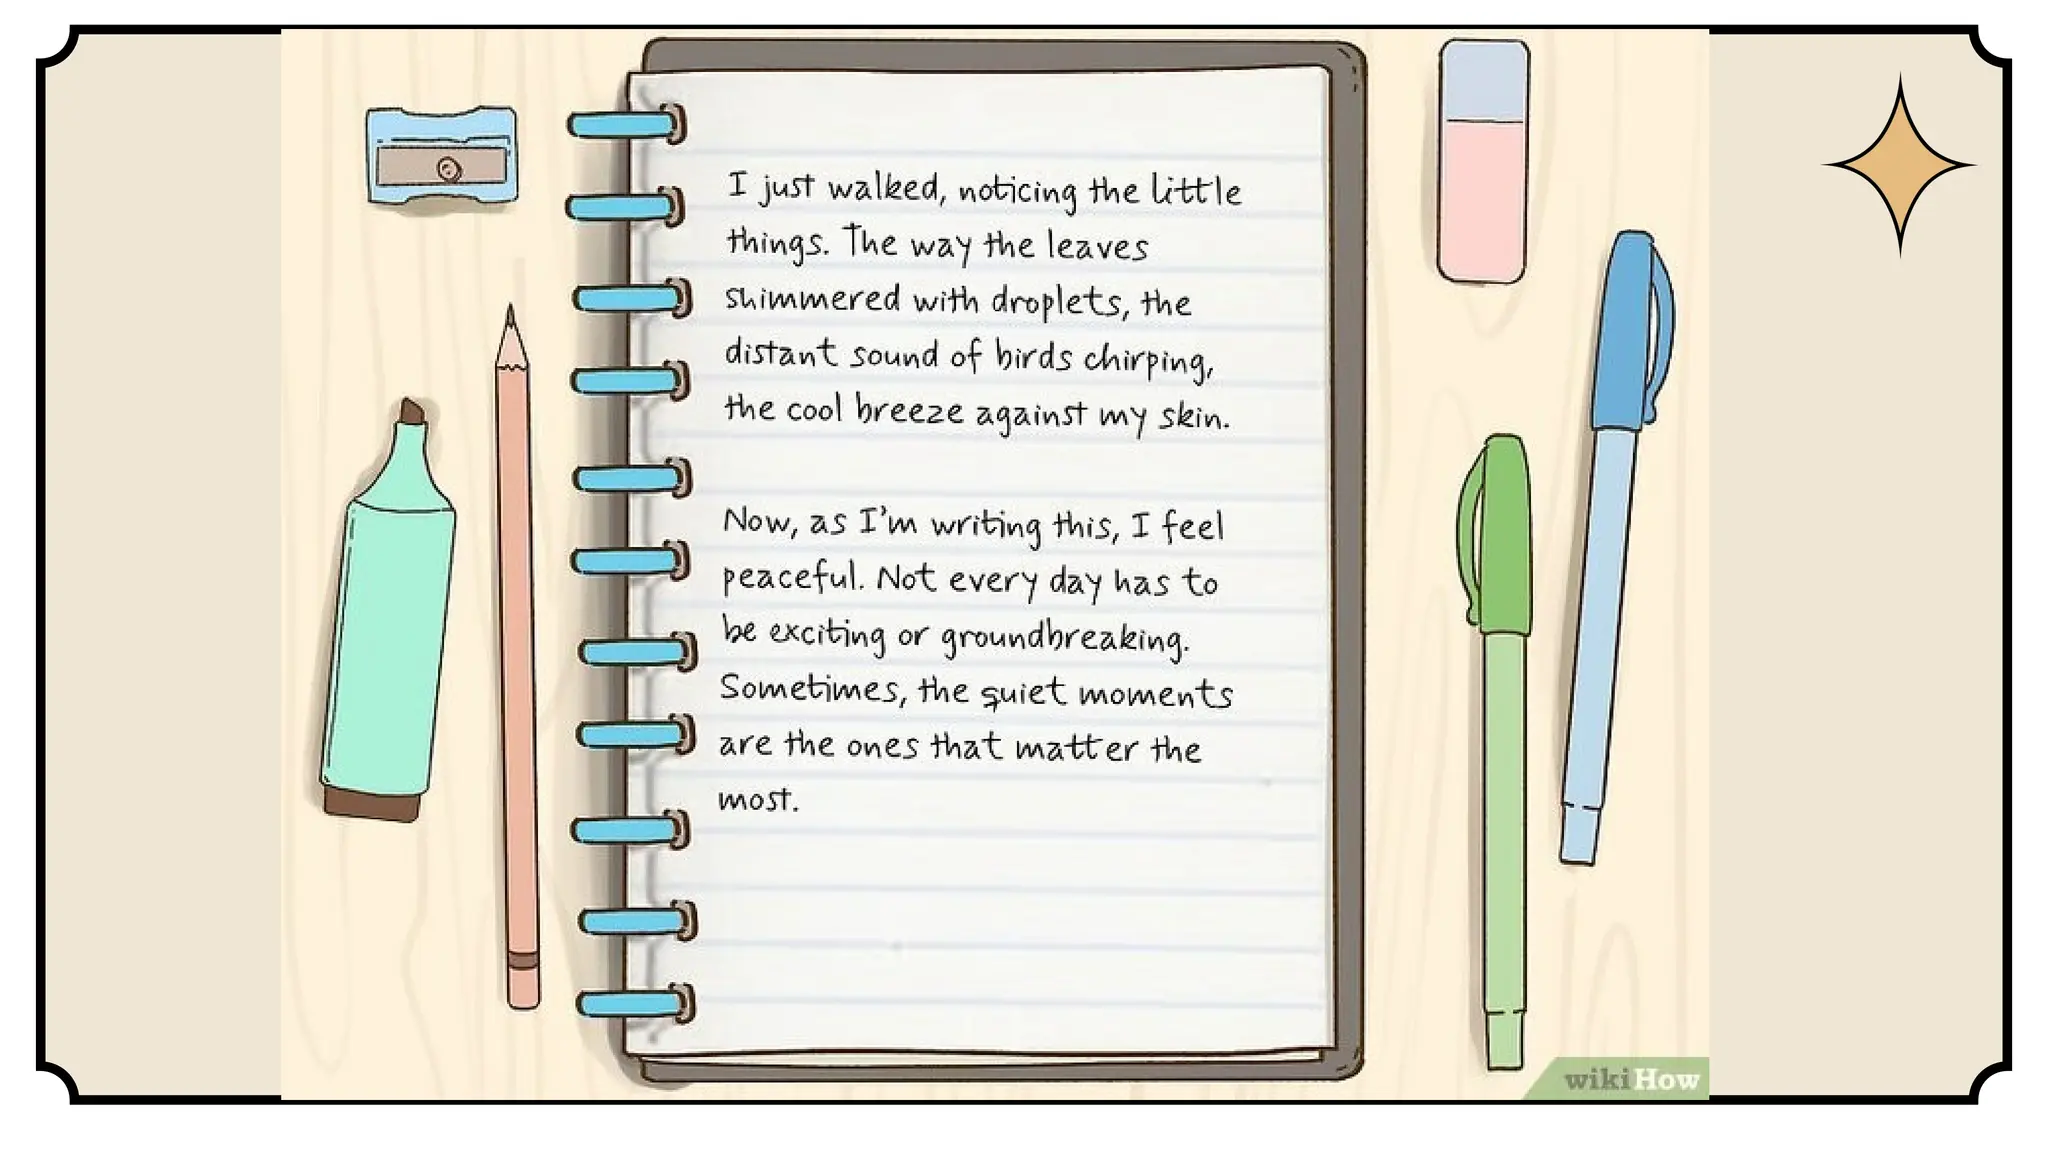 I just walked, noticing the little
things. The way the leaves
shimmered with droplets, the
distant sound of birds chirping,
the cool breeze against my skin.
Now, as I'm writing this, I feel
peaceful. Not every day has to
be exciting or groundbreaking.
Sometimes, the quiet moments
are the ones that matter the
most.
wikiHow